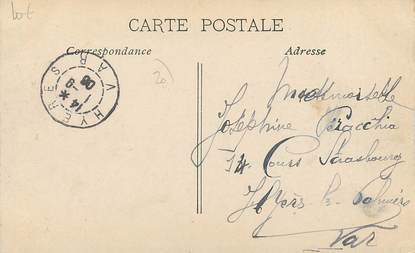 lot
CARTE POSTALE
Correspondance
Adresse
HYERES VAR
14 -9 08
20
Mademoiselle
Joséphine Peracchia
14 Cours Strasbourg
Hyères les Palmiers
Var